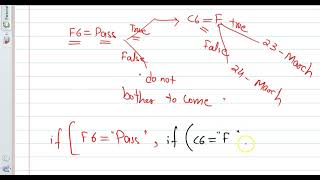 F6 = Pass True C6 = F true
False False 23 - March
do not 24 - March
bother to come .
if [ F6 = "Pass" , if ( C6 = "F" .